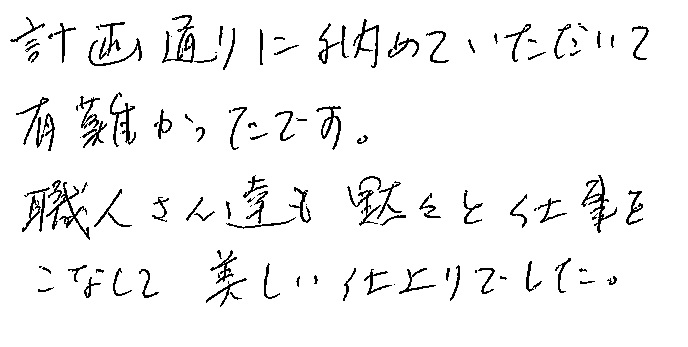 計画通りに納めていただいて
有難かったです。
職人さん達も黙々と仕事を
こなして 美しい仕上りでした。